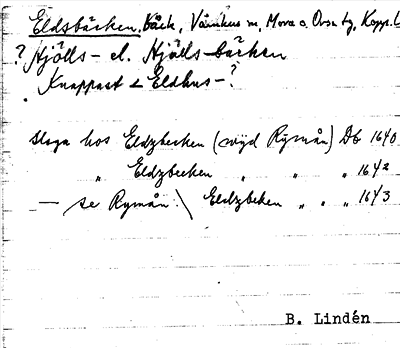 Eldsbäcken, bäck, Våmhus sn, Mora o. Orsa tg, Kopp. l
? Hjälls- el. Hjälls-bäcken
Knappast < Eldhus-?
slogn hos Eldzbecken (wijd Rymån) Db 1640
" Eldzbecken " " " 1642
— se Rymån \ Eldzbeken " " " 1643
B. Lindén